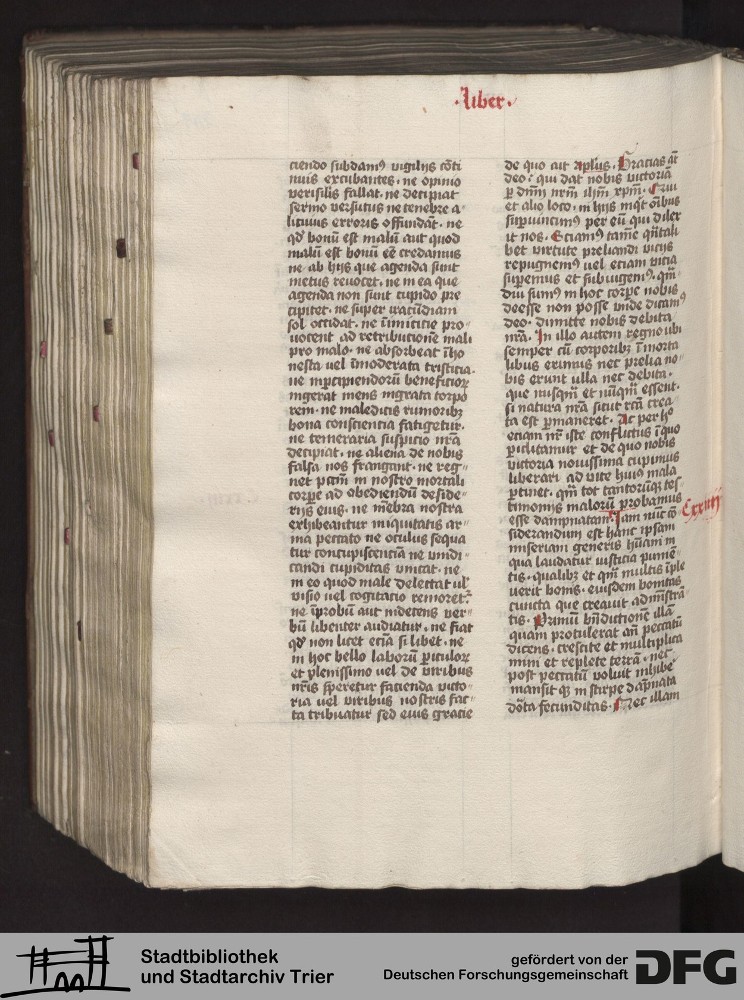 ·Liber·
ciendo subdamꝰ vigilijs cōti
nuis excubantes· ne opinio
verisilis fallat· ne decipiat
sermo versutus ne tenebre a-
licuius erroris offundāt· ne
qd̓ bonū est malū aut quod
malū est bonū eē credamus
ne ab hijs que agenda sunt
metus revocet· ne in ea que
agenda non sunt cupido pre
cipitet· ne super iracūdiam
sol occidat· ne inimicitie pro-
vocent ad retributionē mali
pro malo· ne absorbeat īho
nesta vel īmoderata tristicia·
ne īpercipiendorū beneficior̄
ingerat mens ingrata torpo
rem· ne maledicis rumoribꝫ
bona conscientia fatigetur·
ne temeraria suspicio nrā
decipiat· ne aliena de nobis
falsa nos frangant· ne reg-
net pctm̄ in nostro mortali
corpe ad obediendū deside-
rijs eius· ne mēbra nostra
exhibeantur iniquitatis ar-
ma peccato ne oculus sequa
tur concupiscentiā ne vindi-
candi cupiditas vincat· ne
in eo quod male delectat vl̓
visio vel cogitatio remoret̄·
ne īprobū aut indecens ver-
bū libenter audiatur· ne fiat
qd̓ non licet eciā si libet· ne
in hoc bello laborū ꝑiculorꝫ
et plenissimo vel de viribus
nr̄is speretur facienda victo-
ria vel viribus nostris fac-
ta tribuatur sed eius gracie
de quo ait aplus· Gracias āt
deo· qui dat nobis victoriā
ꝑ dnm̄ nrm̄ ihm̄ xpm̄· Qui
et alio loco· in hijs inqt̓ oībus
supvincimꝰ per eū qui dilex
it nos· Sciamꝰ tamē quātali
bet virtute preliandi vicijs
repugnemꝰ vel etiam vicia
supemus et subiugemꝰ· qm̄-
diu sumꝰ in hoc corpe nobis
deesse non posse unde dicamꝰ
deo· dimitte nobis debita
nrā· In illo autem regno ubi
semper cū corporibꝫ īmorta
libus erimus nec prelia no-
bis erunt ulla nec debita·
que nusqm̄ et nūqm̄ essent·
si natura nrā sicut rcā crea
ta est ꝑmaneret· Ac per ho
eciam nr̄ iste conflictus ī quo
periclitamur et de quo nobis
victoria novissima cupimus
liberari ad vite huiꝰ mala
ꝑtinet· qm̄ tot tantorūqꝫ tes
timonijs malorū probamus
esse dampnatam· Iam nūc cō
siderandum est hanc ipsam
miseriam generis hūani in
qua laudatur iusticia punie-
tis· qualibꝫ et qm̄ multis īple
verit bonis· eiusdem bonitas
cuncta que creavit admīstrā-
tis· Primū bn̄dictionē illā
quam protulerat an̄ peccatū
dicens· crescite et multiplica
mini et replete terrā· nec
post peccatū voluit inhibe
mansit qꝫ in stirpe dāpnata
dōta fecunditas· Nec illam
Cxxiiij
Stadtbibliothek
und Stadtarchiv Trier
gefördert von der
Deutschen Forschungsgemeinschaft
DFG